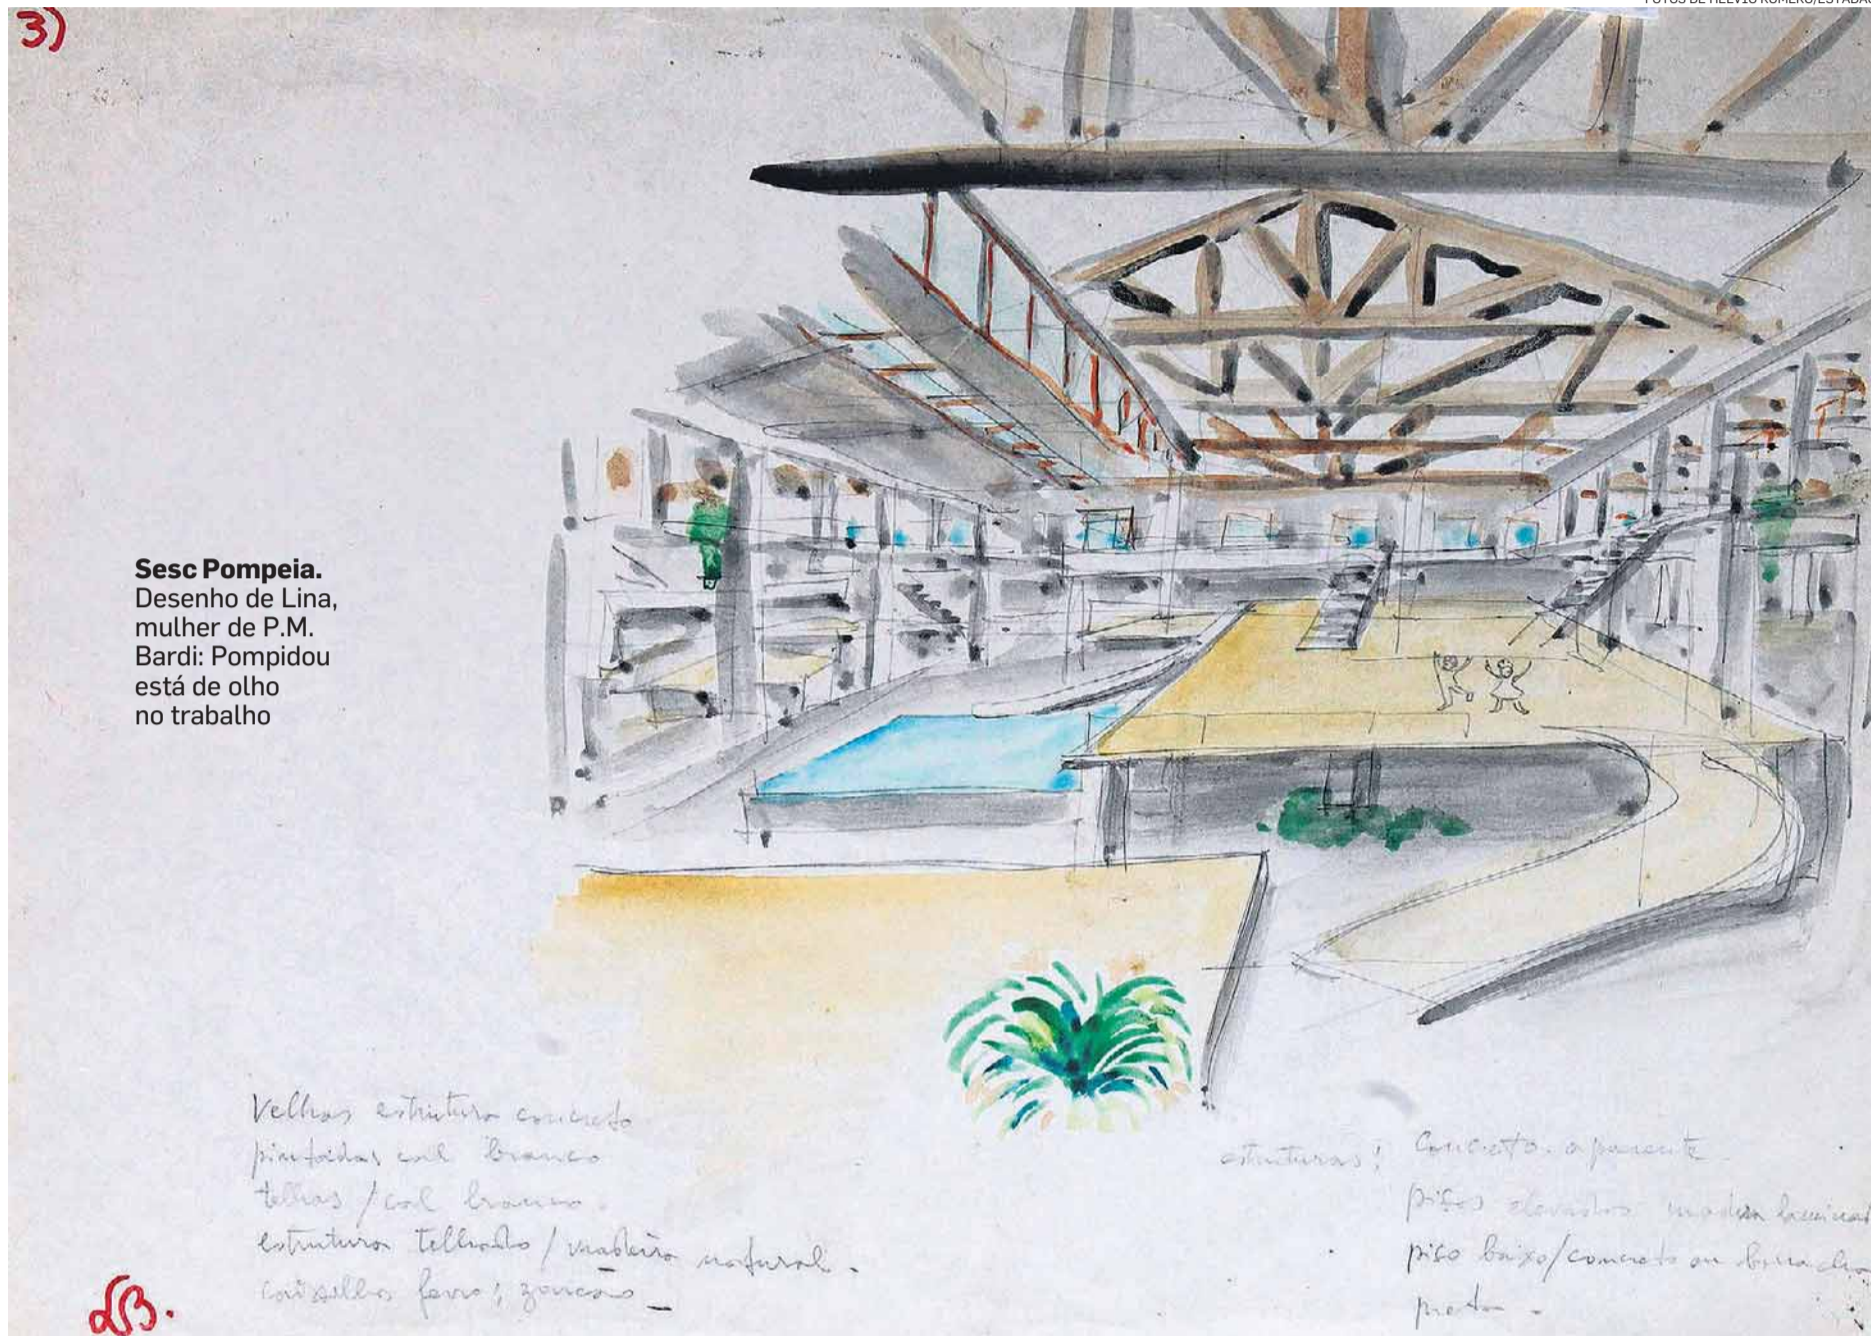 FOTOS DE HELVIO ROMERO/ESTADÃO
3)
Sesc Pompeia.
Desenho de Lina,
mulher de P.M.
Bardi: Pompidou
está de olho
no trabalho
Velhas estrutura concreto
pintadas cal branco
telhas / cal branco.
estrutura telhado / madeira natural.
ferro; zarcão
estruturas: Concreto aparente
pisos elevados madeira
piso baixo/concreto ou borracha
preta.
LB.